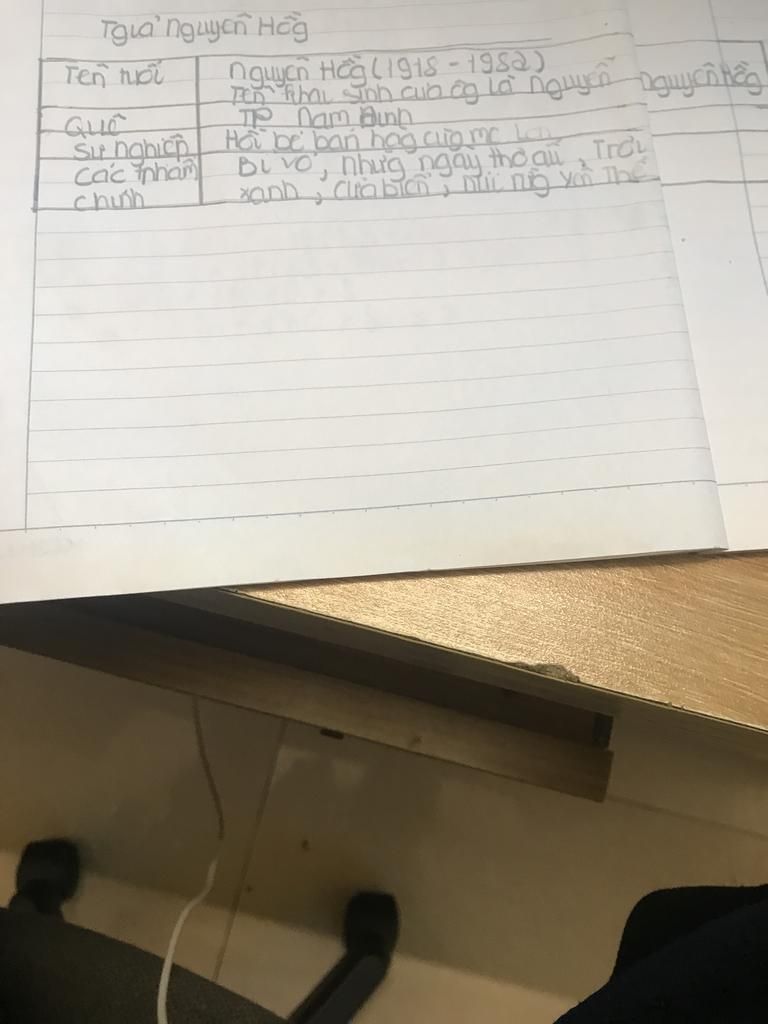 Tguả Nguyên Hồg
Tên tuổi
Nguyên Hồg (1918 - 1982)
Tên khai sinh của ôg là Nguyễn Nguyên Hồg
Quê
TP Nam Định
Sự nghiệp
Hồi bé bán hàg cùg mẹ
Các phẩm
Bỉ vỏ, những ngày thơ ấu, Trời
chính
xanh, cửa biển, núi rừg Yên Thế